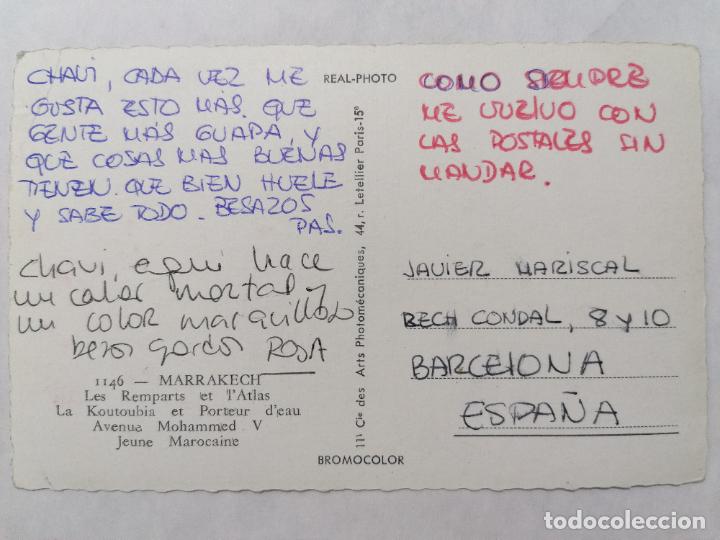 CHAVI, CADA VEZ ME
GUSTA ESTO MÁS. QUE
GENTE MÁS GUAPA, Y
QUE COSAS MAS BUENAS
TIENEN. QUE BIEN HUELE
Y SABE TODO. BESAZOS
PAS.
chavi, aqui hace
un calor mortal y
un color maravilloso
besos gordos ROSA
1146 — MARRAKECH
Les Remparts et l'Atlas
La Koutoubia et Porteur d'eau
Avenue Mohammed V
Jeune Marocaine
REAL-PHOTO
11 Cie des Arts Photomécaniques, 44, r. Letellier Paris-15e
BROMOCOLOR
COMO SIEMPRE
ME VUELVO CON
LAS POSTALES SIN
MANDAR.
JAVIER MARISCAL
BECH CONDAL, 8 y 10
BARCELONA
ESPAÑA
todocoleccion.net